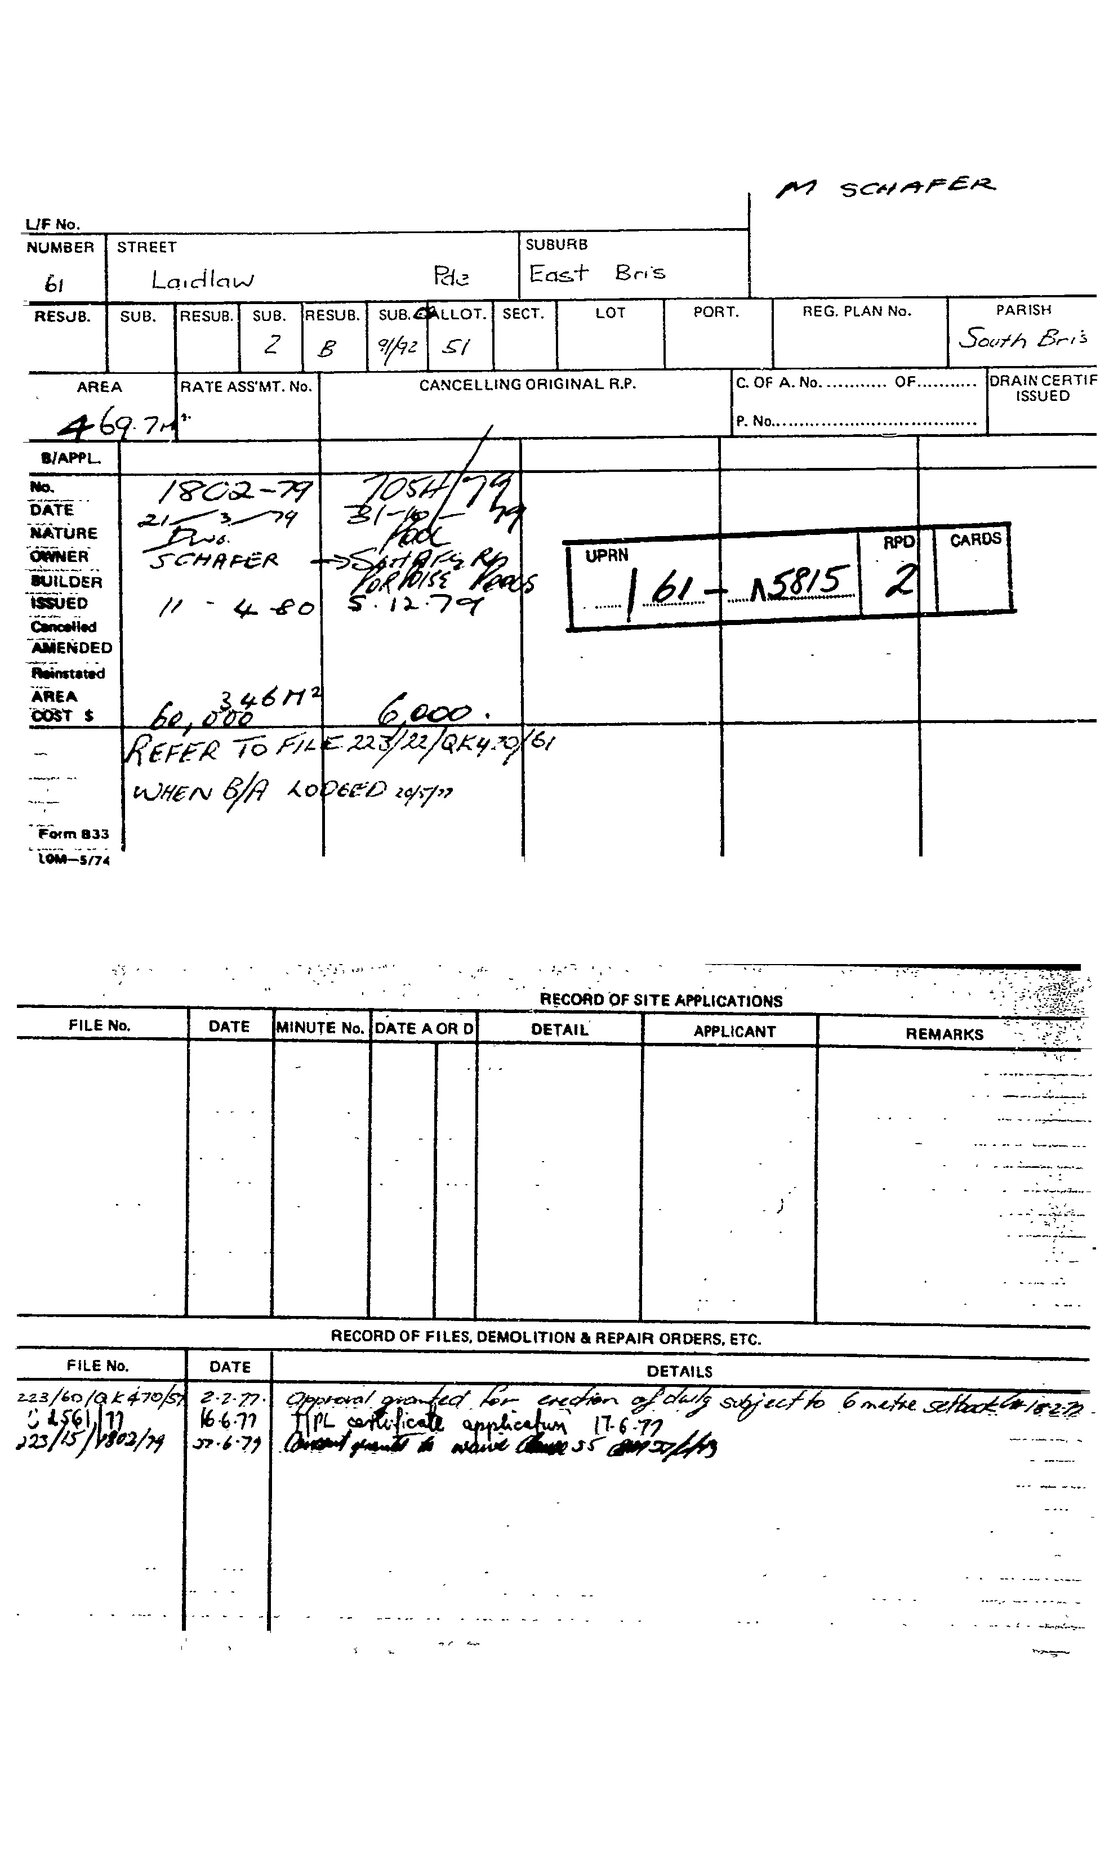 M SCHAFER
L/F No.
NUMBER STREET SUBURB
61 Laidlaw Pde East Bris
RESUB. SUB. RESUB. SUB. RESUB. SUB. ALLOT. SECT. LOT PORT. REG. PLAN No. PARISH
2 B 91/92 51 South Bris
AREA RATE ASS'MT. No. CANCELLING ORIGINAL R.P. C. OF A. No. OF DRAIN CERTIF
ISSUED
469.7M². P. No.
B/APPL.
No. 1802-79 705H/79
DATE 21/3/79 31-10-79
NATURE Dwg. Pool
OWNER SCHAFER → SCHAFER
BUILDER PORPOISE POOLS
ISSUED 11-4-80 5.12.79
Cancelled
AMENDED
Reinstated
AREA 346M²
COST $ 60,000 6,000.
UPRN RPD CARDS
161- 5815 2
REFER TO FILE 223/22/QK430/61
WHEN B/A LODGED 20/5/77
Form B33
10M—5/74
RECORD OF SITE APPLICATIONS
FILE No. DATE MINUTE No. DATE A OR D DETAIL APPLICANT REMARKS
RECORD OF FILES, DEMOLITION & REPAIR ORDERS, ETC.
FILE No. DATE DETAILS
223/60/QK470/51 2.2.77. Approval granted for erection of dwlg subject to 6 metre setback 18.2.77
2561/77 16.6.77 certificate application 17.6.77
223/15/1802/79 .6.79 to waive